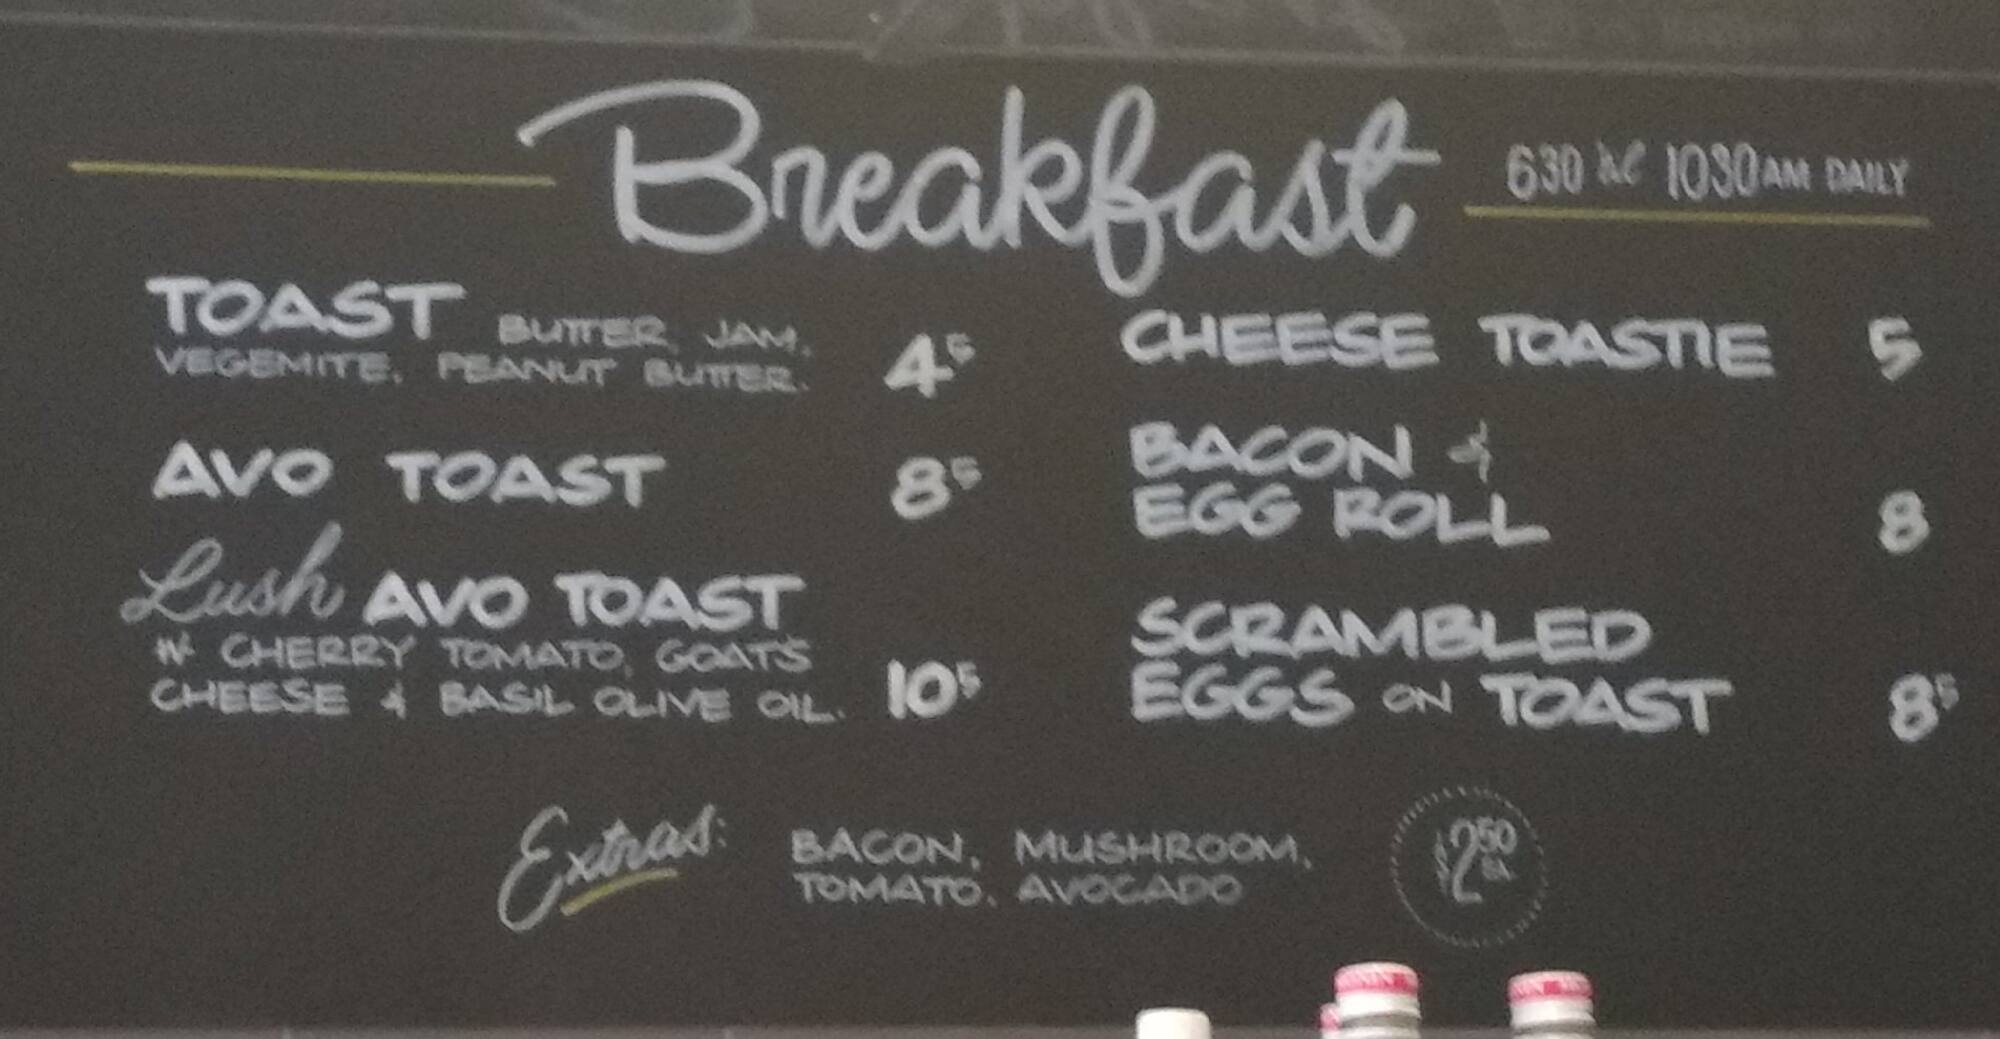 Breakfast
630 'til 1030AM DAILY
TOAST BUTTER, JAM,
VEGEMITE, PEANUT BUTTER. 4⁵
AVO TOAST 8⁵
Lush AVO TOAST
W' CHERRY TOMATO, GOAT'S
CHEESE & BASIL OLIVE OIL. 10⁵
CHEESE TOASTIE 5
BACON &
EGG ROLL 8
SCRAMBLED
EGGS ON TOAST 8⁵
Extras: BACON, MUSHROOM,
TOMATO, AVOCADO
$2⁵⁰
EA.